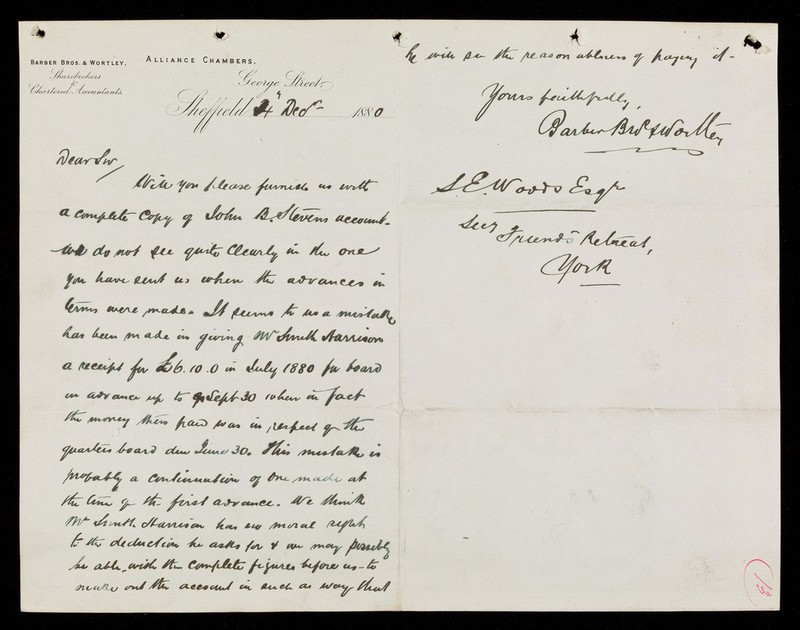 BARBER BROS. & WORTLEY.
Sharebrokers
& Chartered Accountants.
ALLIANCE CHAMBERS.
George Street
Sheffield 24th Decr 1880
Dear Sir,
Will you please furnish us with
a complete copy of John B. Stevens account-
we do not see quite clearly in the one
you have sent us when the advances in
terms were made. It seems to us a mistake
has been made in giving Mr Smith Harrison
a receipt for £6.10.0 in July 1880 for board
in advance up to Sept 30 when in fact
the money then paid was in respect of the
quarters board due June 30. This mistake is
probably a continuation of one made at
the time of the first advance. We think
Mr Smith Harrison has no moral right
to the deduction he asks for & we may possibly
be able, with the complete figures before us - to
make out the account in such a way that
he will see the reasonableness of paying it -
Yours faithfully,
Barber Bros & Wortley
S. E. Woods Esqr
Secy Friends' Retreat,
York